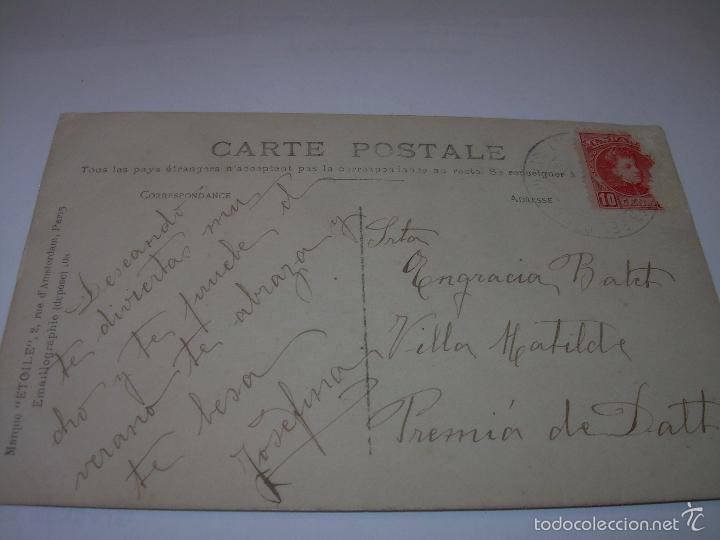 CARTE POSTALE
Tous les pays étrangers n'acceptent pas la correspondance au recto. Se renseigner à
CORRESPONDANCE
ADRESSE
Deseando
te diviertas mu
cho y te pruebe el
verano te abraza y
te besa
Josefina
Srta
Engracia Batet
Villa Matilde
Premiá de Dalt
10
Marque "ETOILE", 2, rue d'Amsterdam, Paris
Emaillographie (déposé)
todocoleccion.net